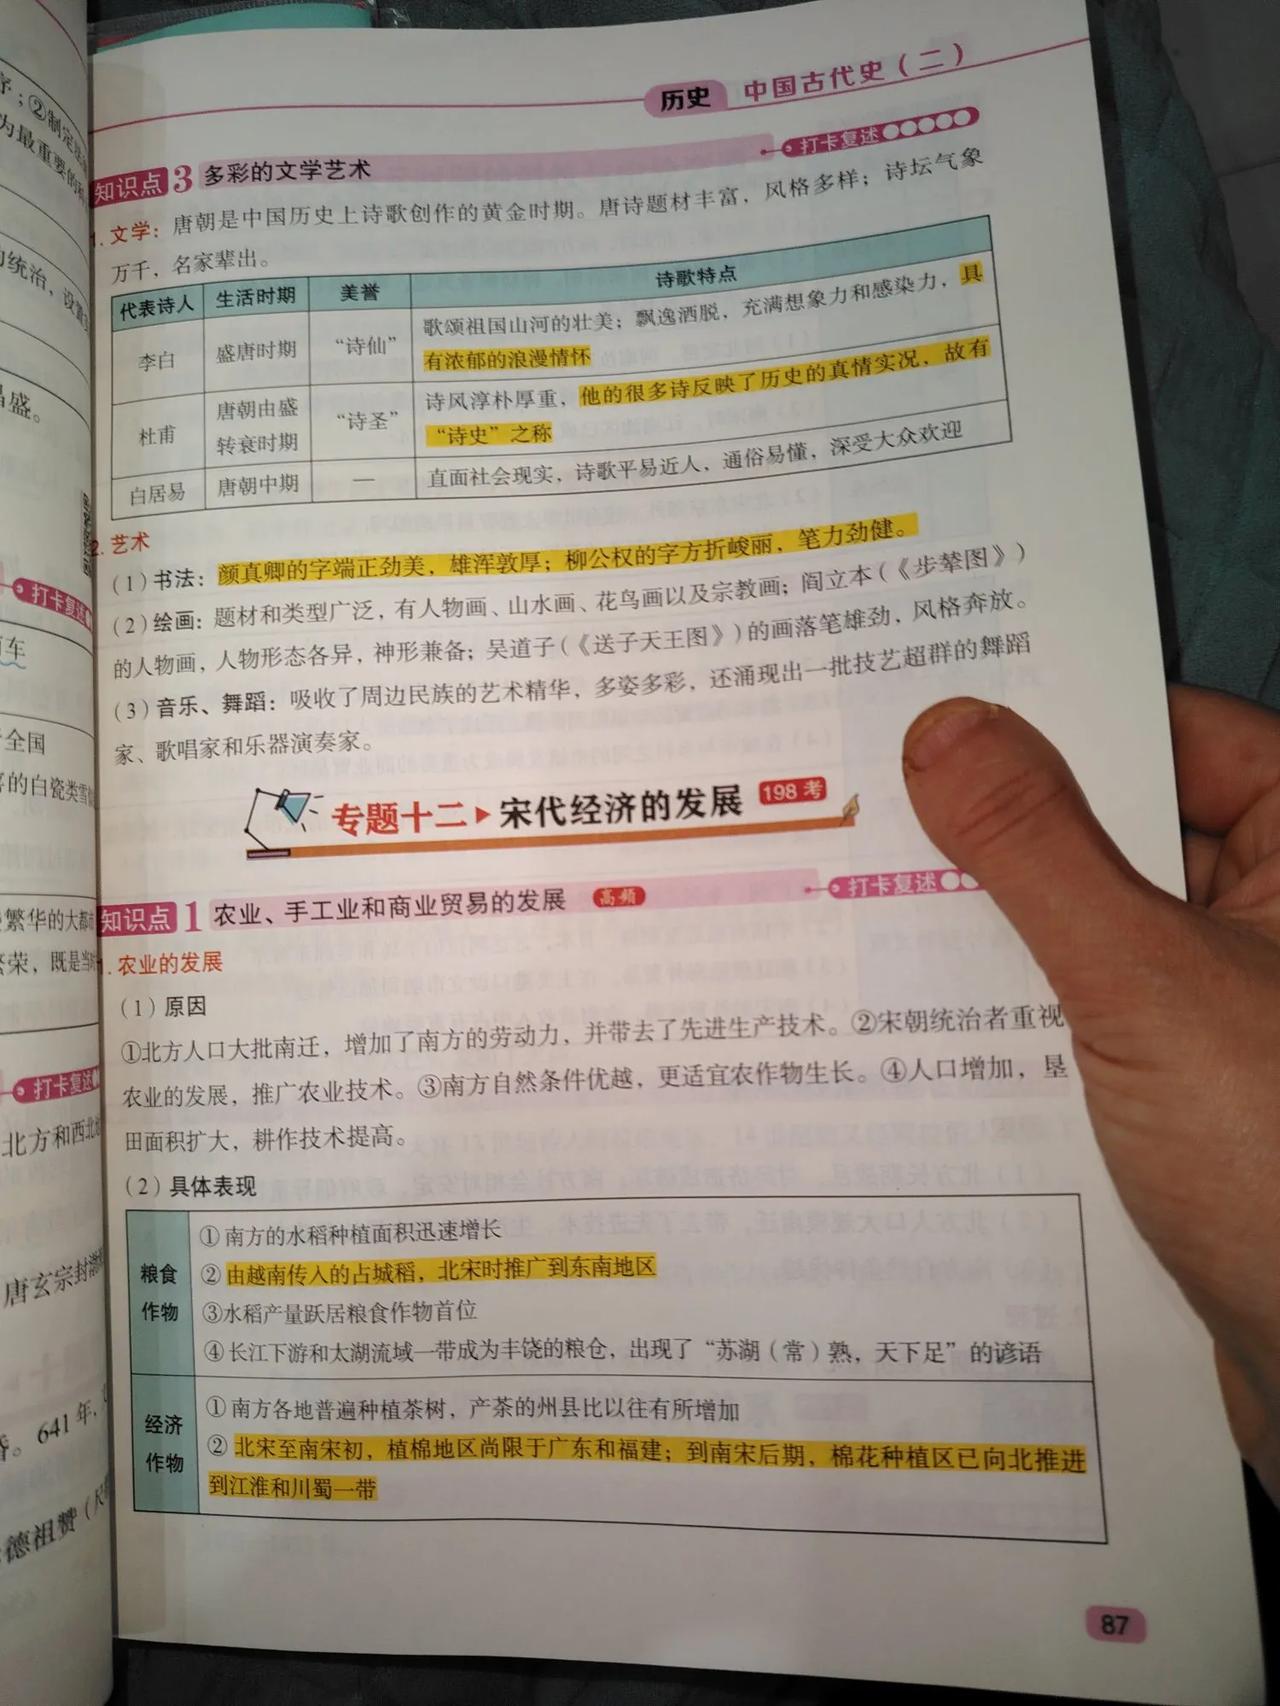 序；②制定
为最重要的
的统治，设置
昌盛。
打卡复述
车
全国
喜的白瓷类雪
繁华的大都市
荣，既是当时
打卡复述
北方和西北
唐玄宗封渤
641年，
德祖赞（尺
历史 中国古代史（二）
知识点3 多彩的文学艺术 打卡复述
1.文学：唐朝是中国历史上诗歌创作的黄金时期。唐诗题材丰富，风格多样；诗坛气象
万千，名家辈出。
代表诗人 生活时期 美誉 诗歌特点
李白 盛唐时期 “诗仙” 歌颂祖国山河的壮美；飘逸洒脱，充满想象力和感染力，具
有浓郁的浪漫情怀
杜甫 唐朝由盛 “诗圣” 诗风淳朴厚重，他的很多诗反映了历史的真情实况，故有
转衰时期 “诗史”之称
白居易 唐朝中期 — 直面社会现实，诗歌平易近人，通俗易懂，深受大众欢迎
2.艺术
（1）书法：颜真卿的字端正劲美，雄浑敦厚；柳公权的字方折峻丽，笔力劲健。
（2）绘画：题材和类型广泛，有人物画、山水画、花鸟画以及宗教画；阎立本（《步辇图》）
的人物画，人物形态各异，神形兼备；吴道子（《送子天王图》）的画落笔雄劲，风格奔放。
（3）音乐、舞蹈：吸收了周边民族的艺术精华，多姿多彩，还涌现出一批技艺超群的舞蹈
家、歌唱家和乐器演奏家。
专题十二 宋代经济的发展 198考
知识点1 农业、手工业和商业贸易的发展 高频 打卡复述
1.农业的发展
（1）原因
①北方人口大批南迁，增加了南方的劳动力，并带去了先进生产技术。②宋朝统治者重视
农业的发展，推广农业技术。③南方自然条件优越，更适宜农作物生长。④人口增加，垦
田面积扩大，耕作技术提高。
（2）具体表现
粮食
作物
①南方的水稻种植面积迅速增长
②由越南传入的占城稻，北宋时推广到东南地区
③水稻产量跃居粮食作物首位
④长江下游和太湖流域一带成为丰饶的粮仓，出现了“苏湖（常）熟，天下足”的谚语
经济
作物
①南方各地普遍种植茶树，产茶的州县比以往有所增加
②北宋至南宋初，植棉地区尚限于广东和福建；到南宋后期，棉花种植区已向北推进
到江淮和川蜀一带
87